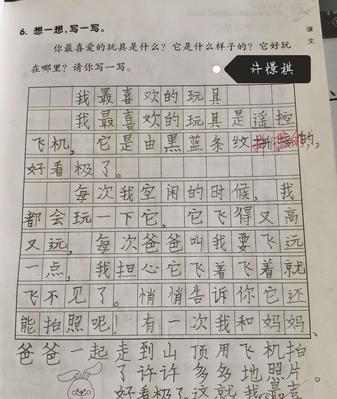 课文
6. 想一想,写一写。
你最喜爱的玩具是什么?它是什么样子的?它好玩
在哪里?请你写一写。
许憬祺
我最喜欢的玩具
我最喜欢的玩具是遥控
飞机,它是由黑蓝条纹的,
好看极了。
每次我空闲的时候,我
都会玩一下它,它飞得又高
又远,每次爸爸叫我要飞远
一点,我担心它飞着飞着就
飞不见了。悄悄告诉你它还
能拍照呢!有一次我和妈妈、
爸爸一起走到山顶用飞机拍
了许许多多地照片。
好看极了。这就我最喜